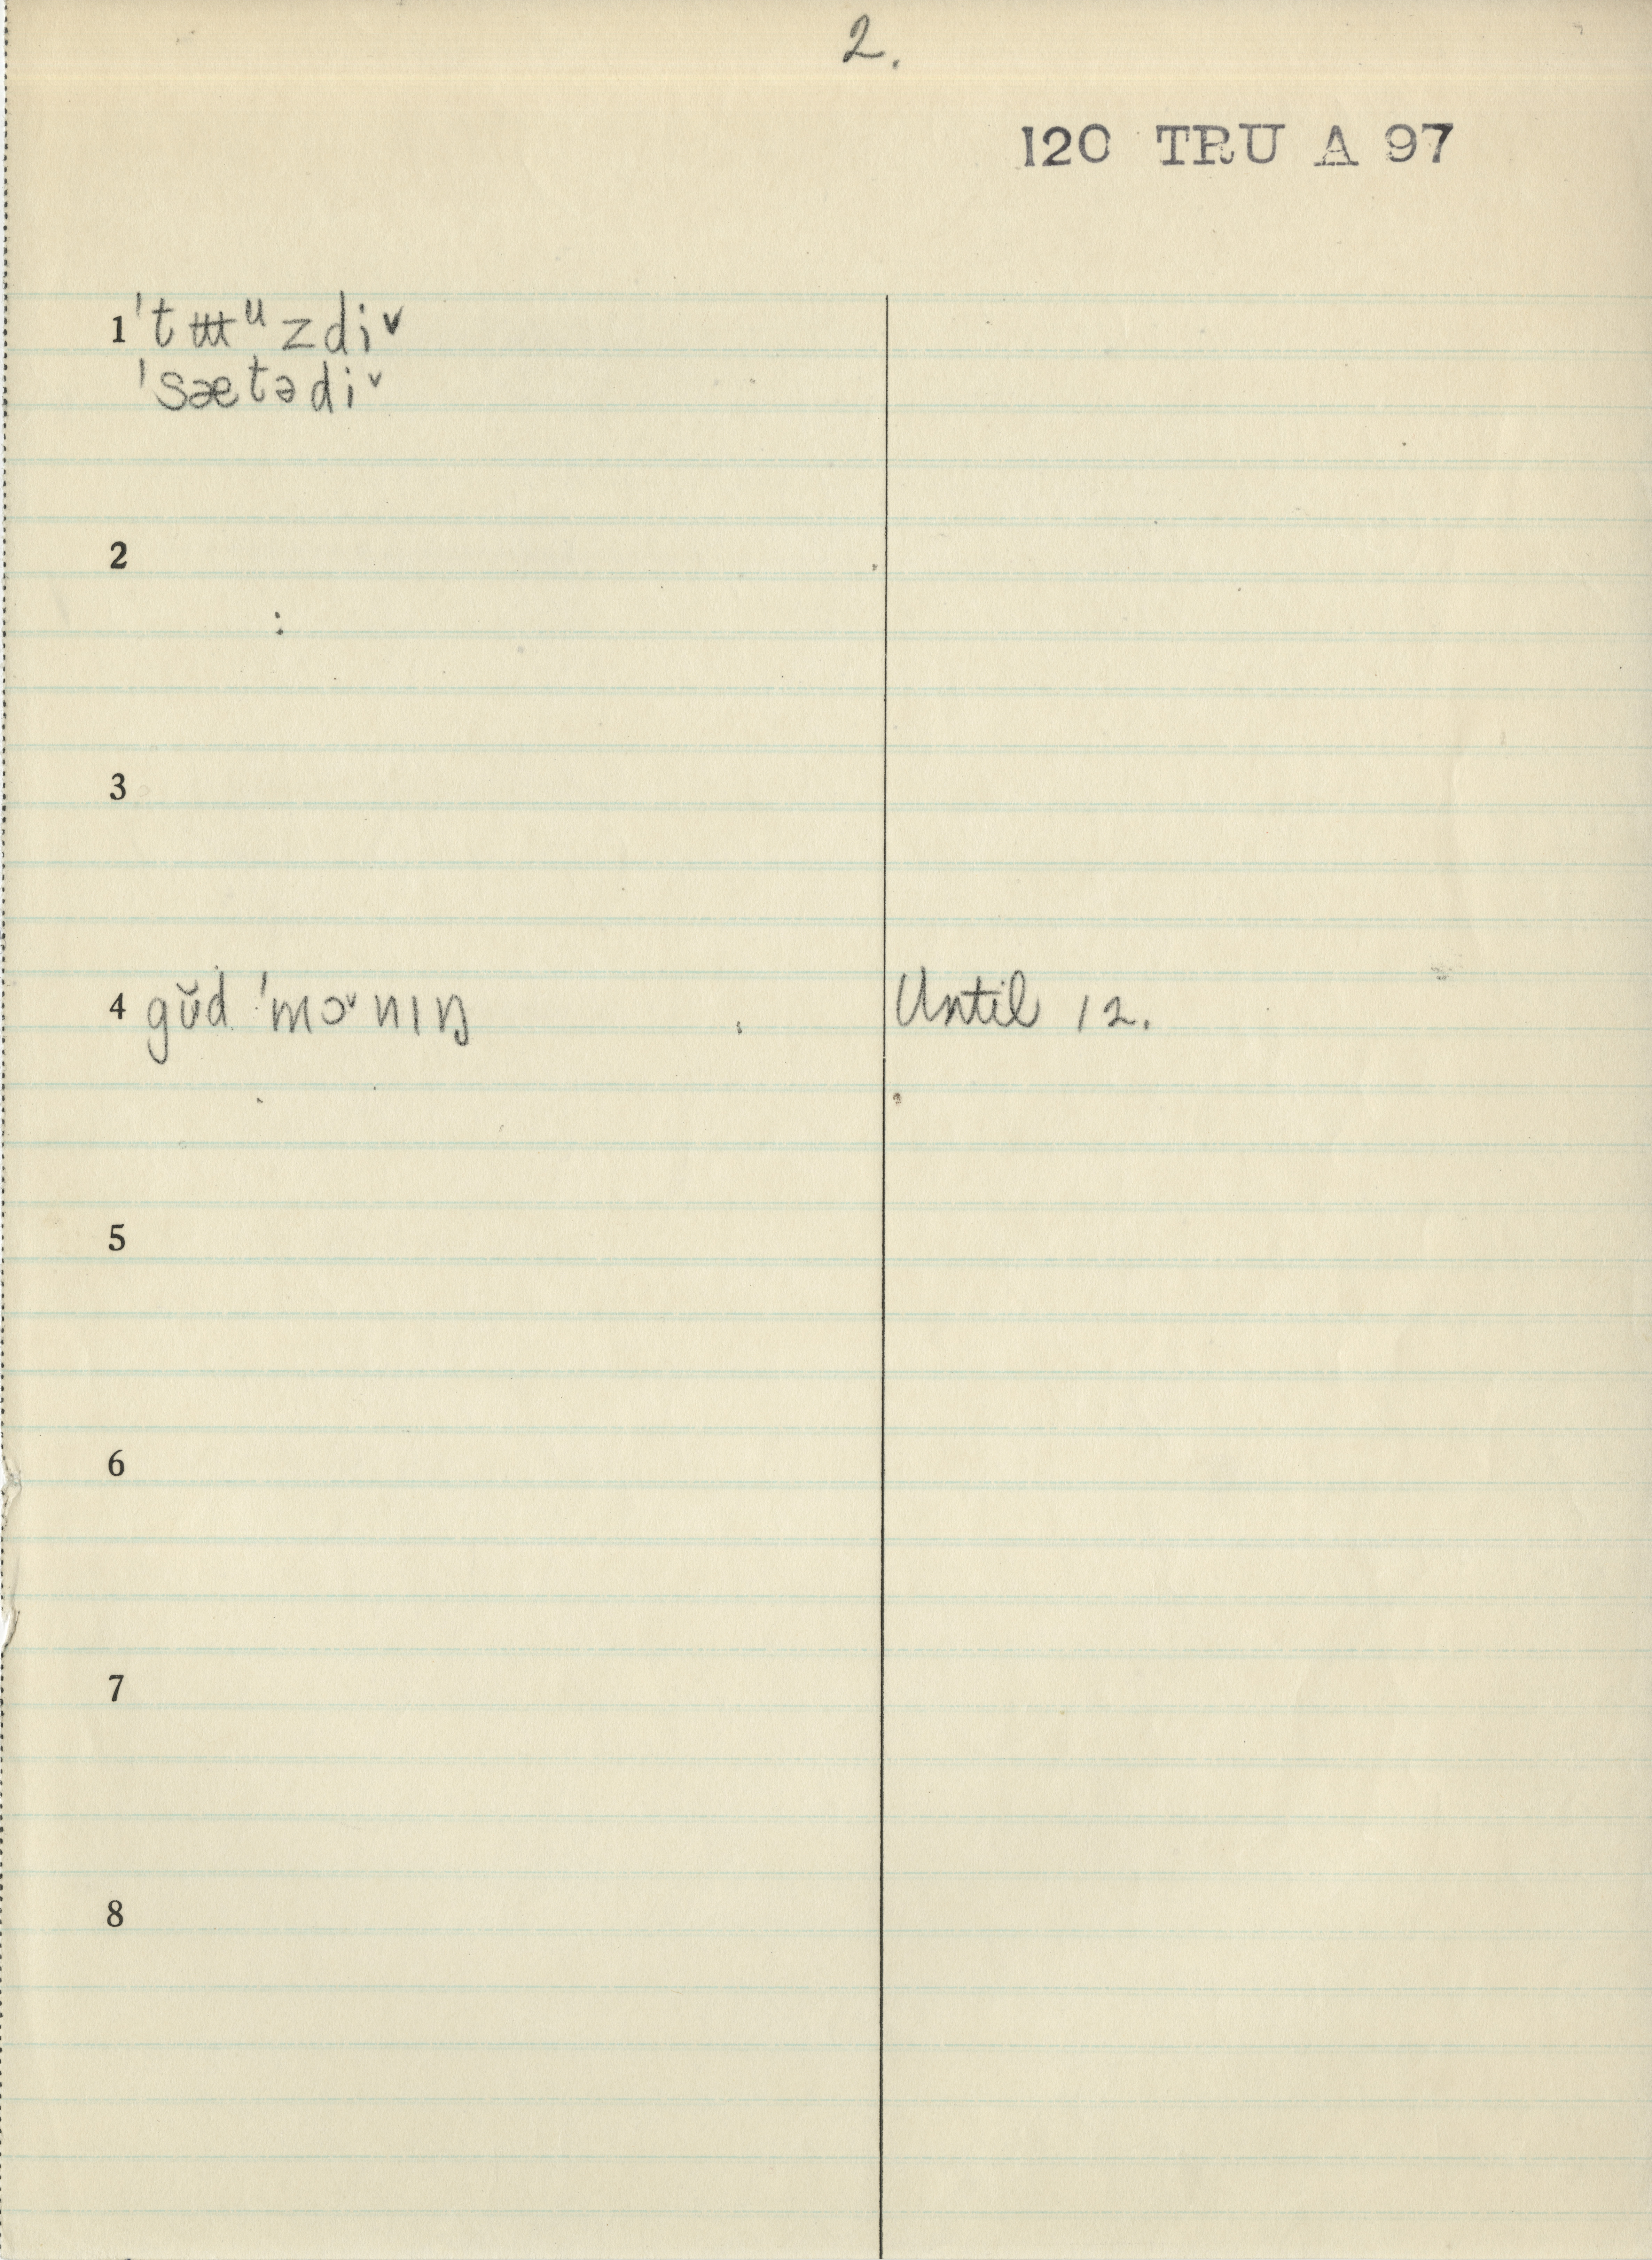 2.
120 TRU A 97
1 ˈtʉᵘzdiˇ
ˈsætədiˇ
2
3
4 gŭd ˈmɔˇnɪŋ Until 12.
5
6
7
8